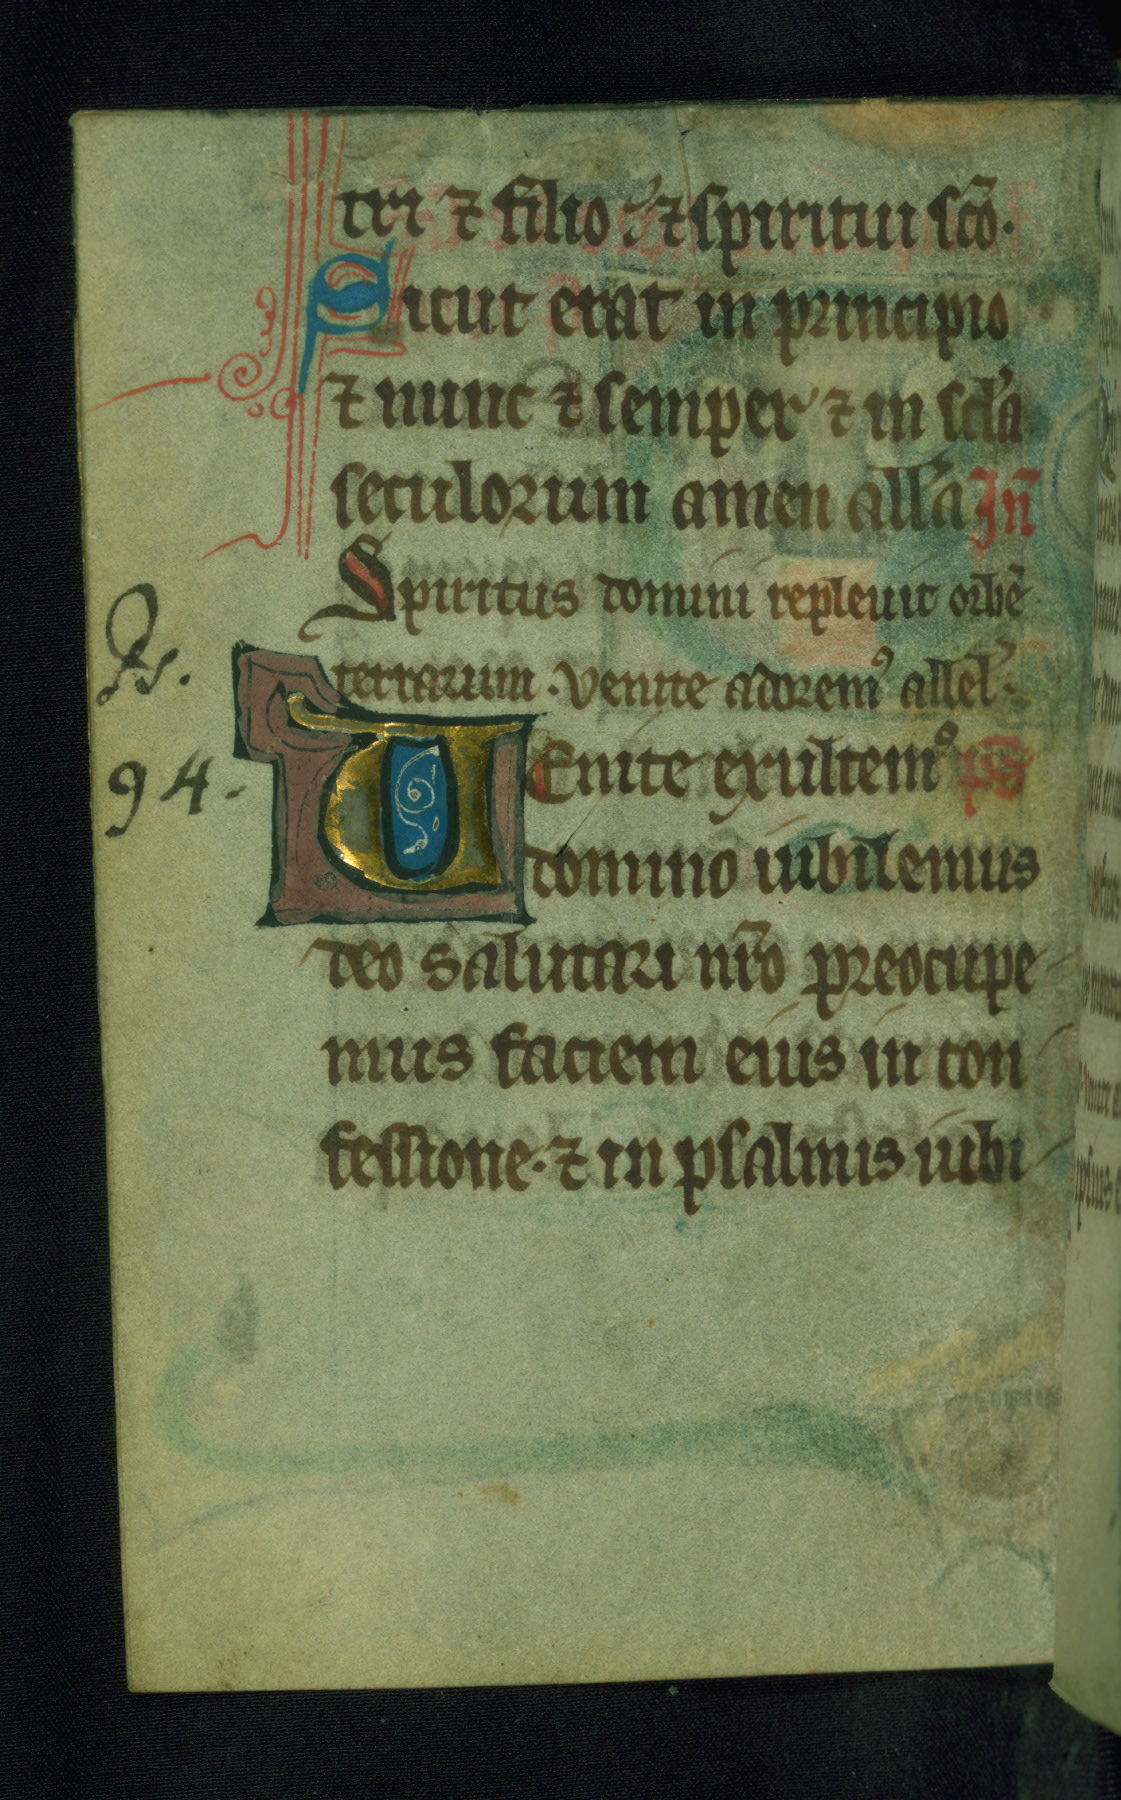 tri ⁊ filio ⁊ spiritui sc̄o.
Sicut erat in principio
⁊ nunc ⁊ semper ⁊ in scl'a
seculorum amen all'a In̄
Spiritus domini repleuit orbē
Ps.
terrarum. venite adorem⁹ allel'.
94.
VEnite exultem⁹ ps
domino iubilemus
deo salutari nr̄o preocupe
mus faciem eius in con
fessione. ⁊ in psalmis iubi